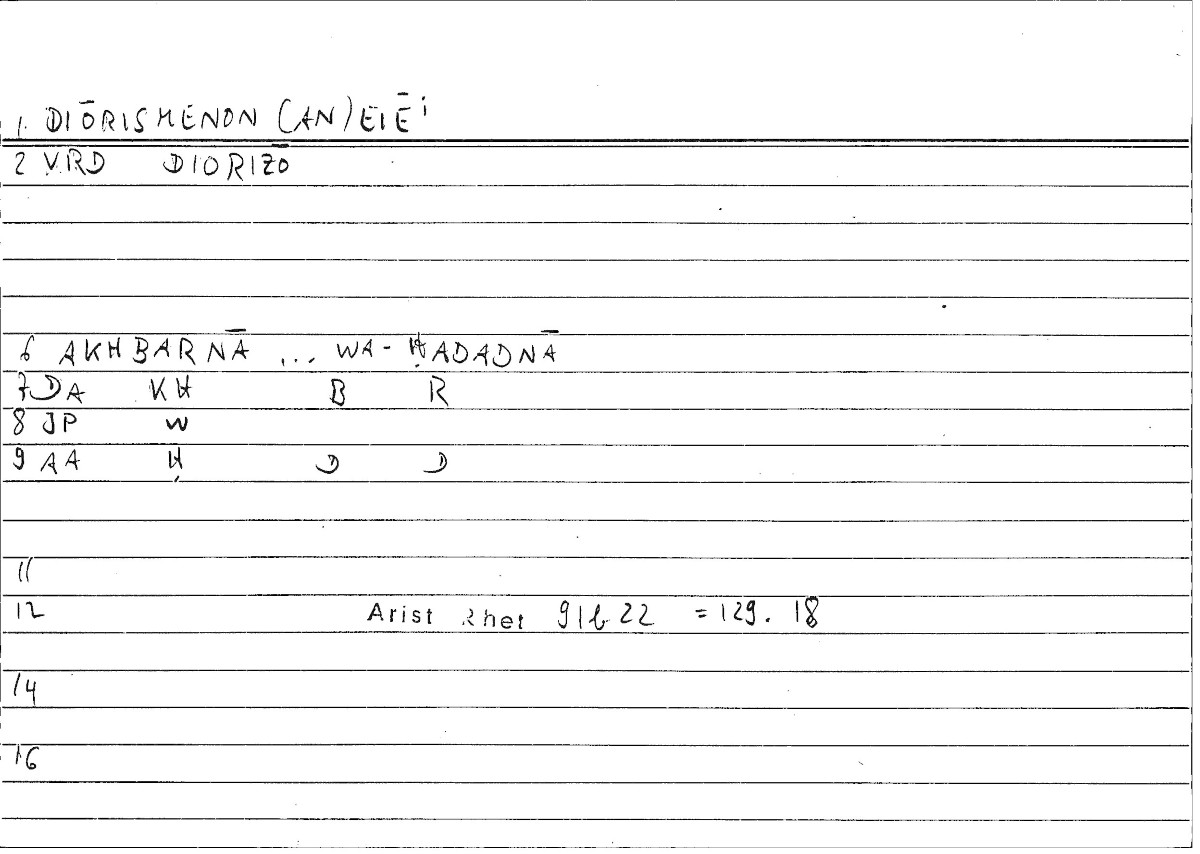 1. DIŌRISMENON (AN) EIĒi
2 VRD DIORIZŌ
6 AKHBARNĀ ... WA-ḤADADNĀ
7 DA KH B R
8 JP W
9 AA Ḥ D D
11
12 Arist Rhet 91b 22 = 129. 18
14
16